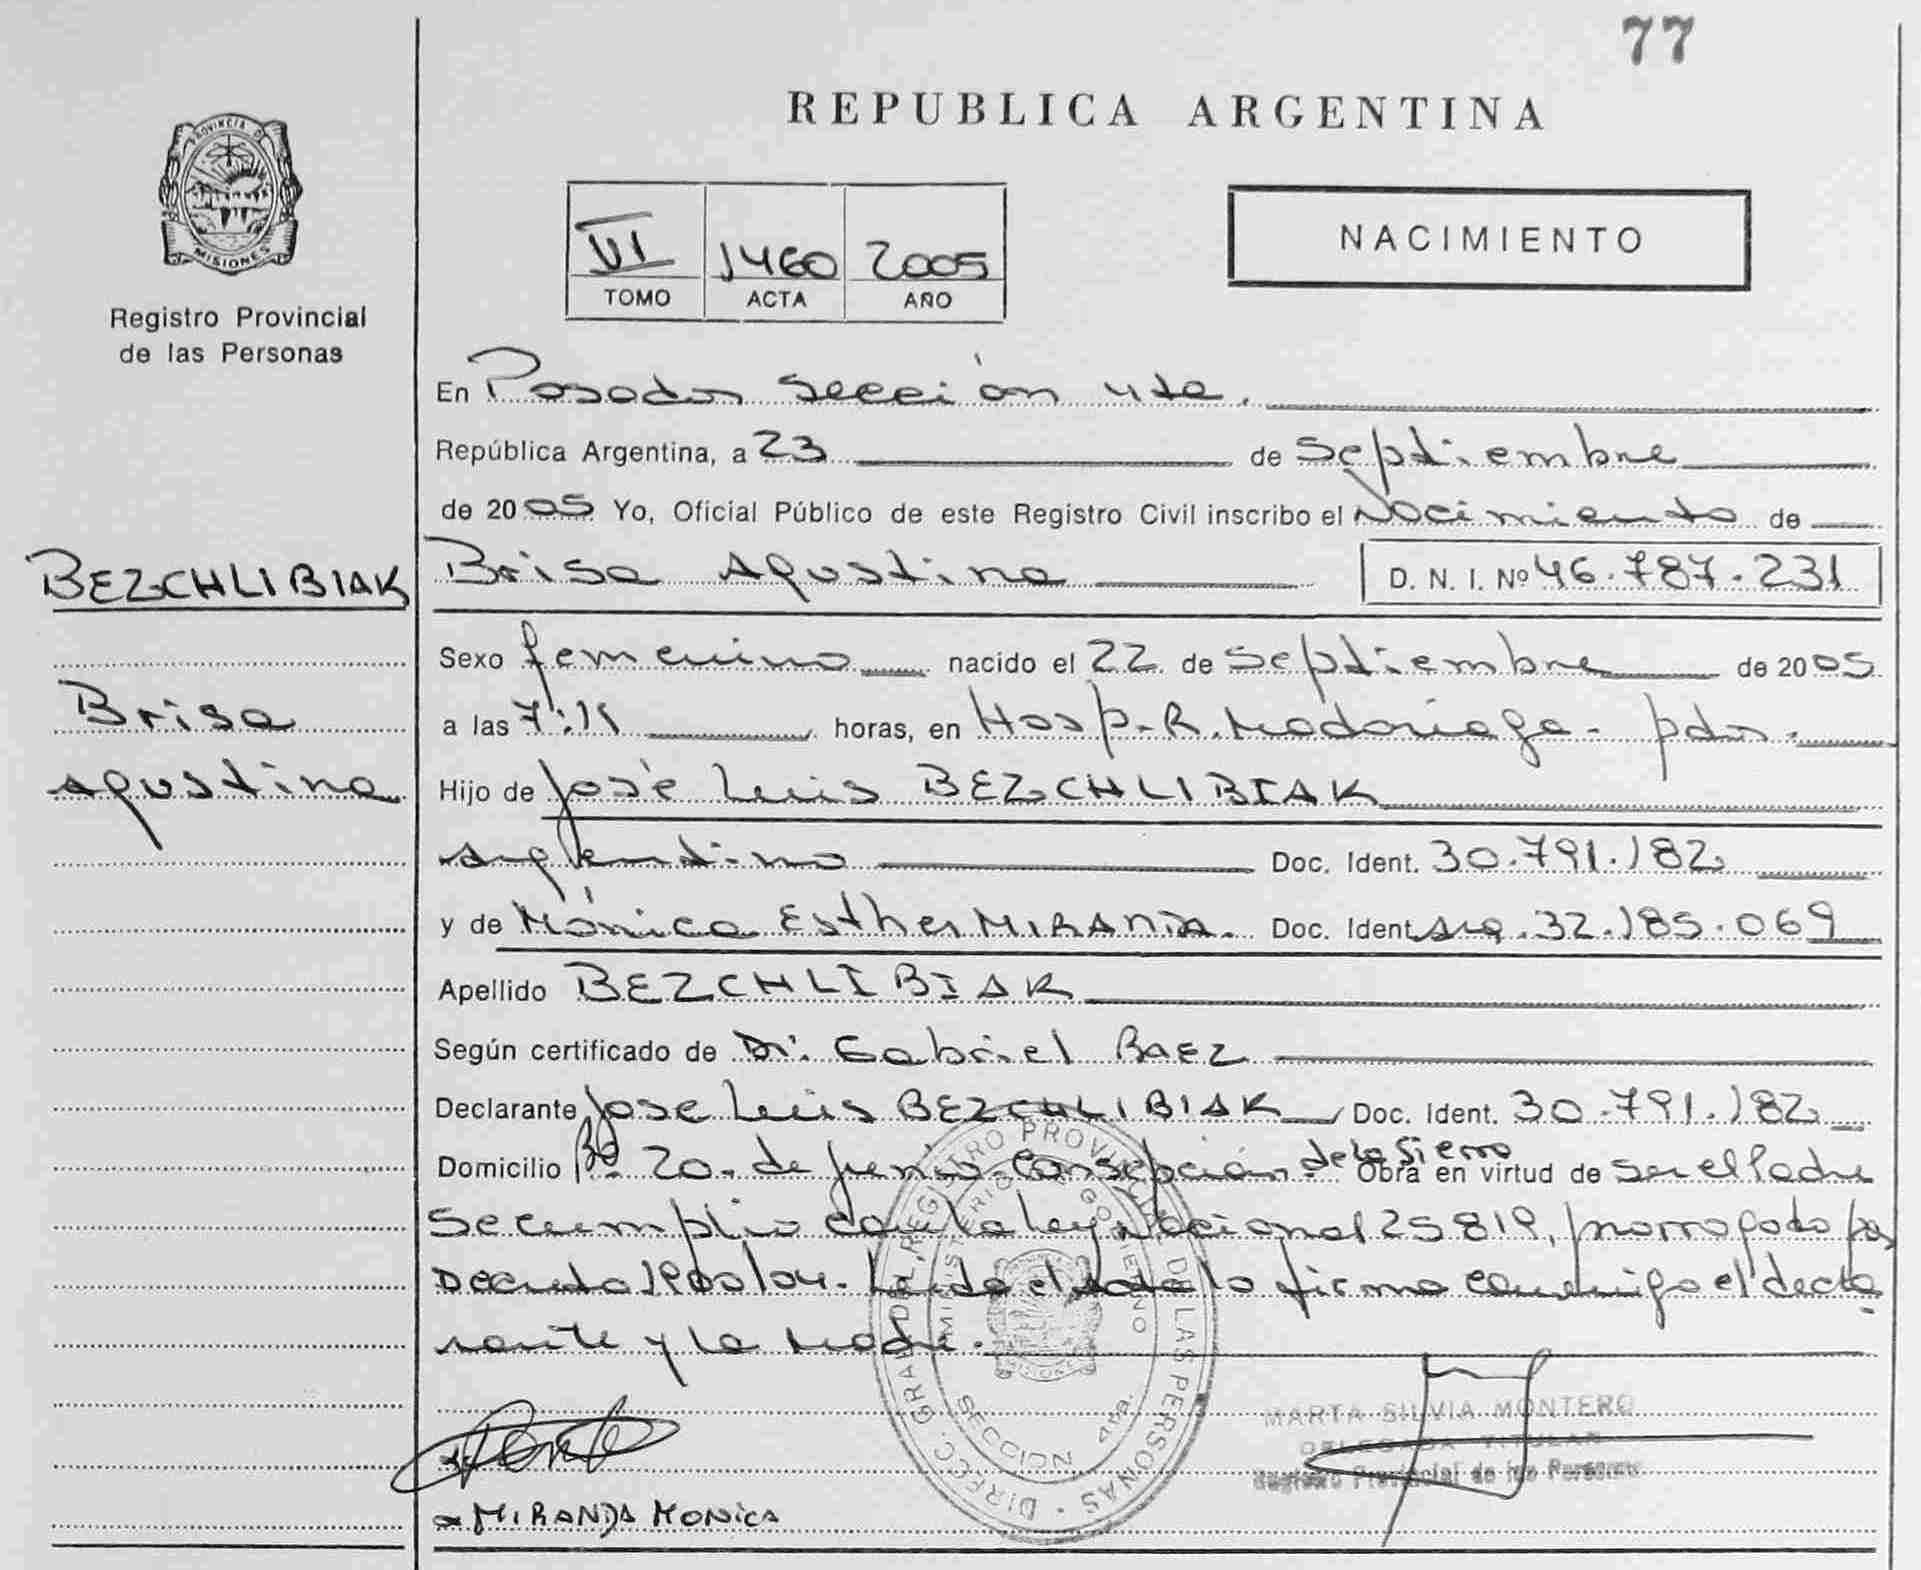 77
REPUBLICA ARGENTINA
PROVINCIA D
MISIONES
Registro Provincial
de las Personas
VI 1460 2005
TOMO ACTA AÑO
NACIMIENTO
En Posadas sección 4ta.
República Argentina, a 23 de Septiembre
de 2005 Yo, Oficial Público de este Registro Civil inscribo el Nacimiento de
BEZCHLIBIAK
Brisa Agustina D. N. I. Nº 46.787.231
Sexo femenino nacido el 22 de Septiembre de 2005
Brisa
a las 7:15 horas, en Hosp. R. Madariaga - pdas.
Agustina
Hijo de José Luis BEZCHLIBIAK
argentino Doc. Ident. 30.791.182
y de Mónica Esther MIRANDA. Doc. Ident. arg. 32.185.069
Apellido BEZCHLIBIAK
Según certificado de Dr. Gabriel BAEZ
Declarante Jose Luis BEZCHLIBIAK Doc. Ident. 30.791.182
Domicilio Bº 20 de junio Consepción de la Sierra Obra en virtud de ser el Padre
se cumplio con la ley Nacional 25819, prorrogada por
Decreto 1900/04. Leida el acta lo firma conmigo el decla
rante y la Madre.
DIRECC. GRAL DEL REGISTRO PROVINCIAL DE LAS PERSONAS
MINISTERIO GOBIERNO
SECCION 4ta.
MARTA SILVIA MONTERO
DELEGADA TITULAR
Registro Provincial de las Personas
MIRANDA MONICA